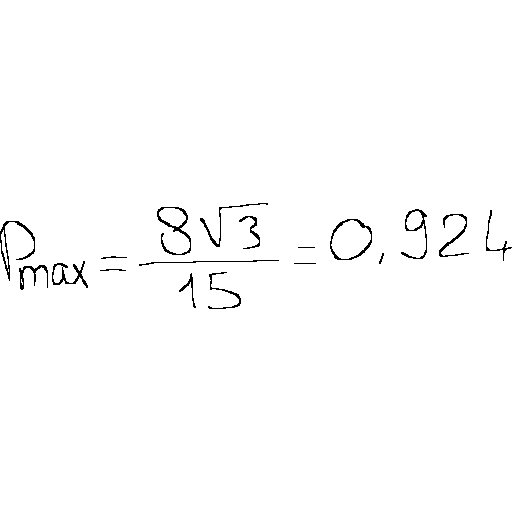 P_max = \frac{8\sqrt{3}}{15} = 0,924